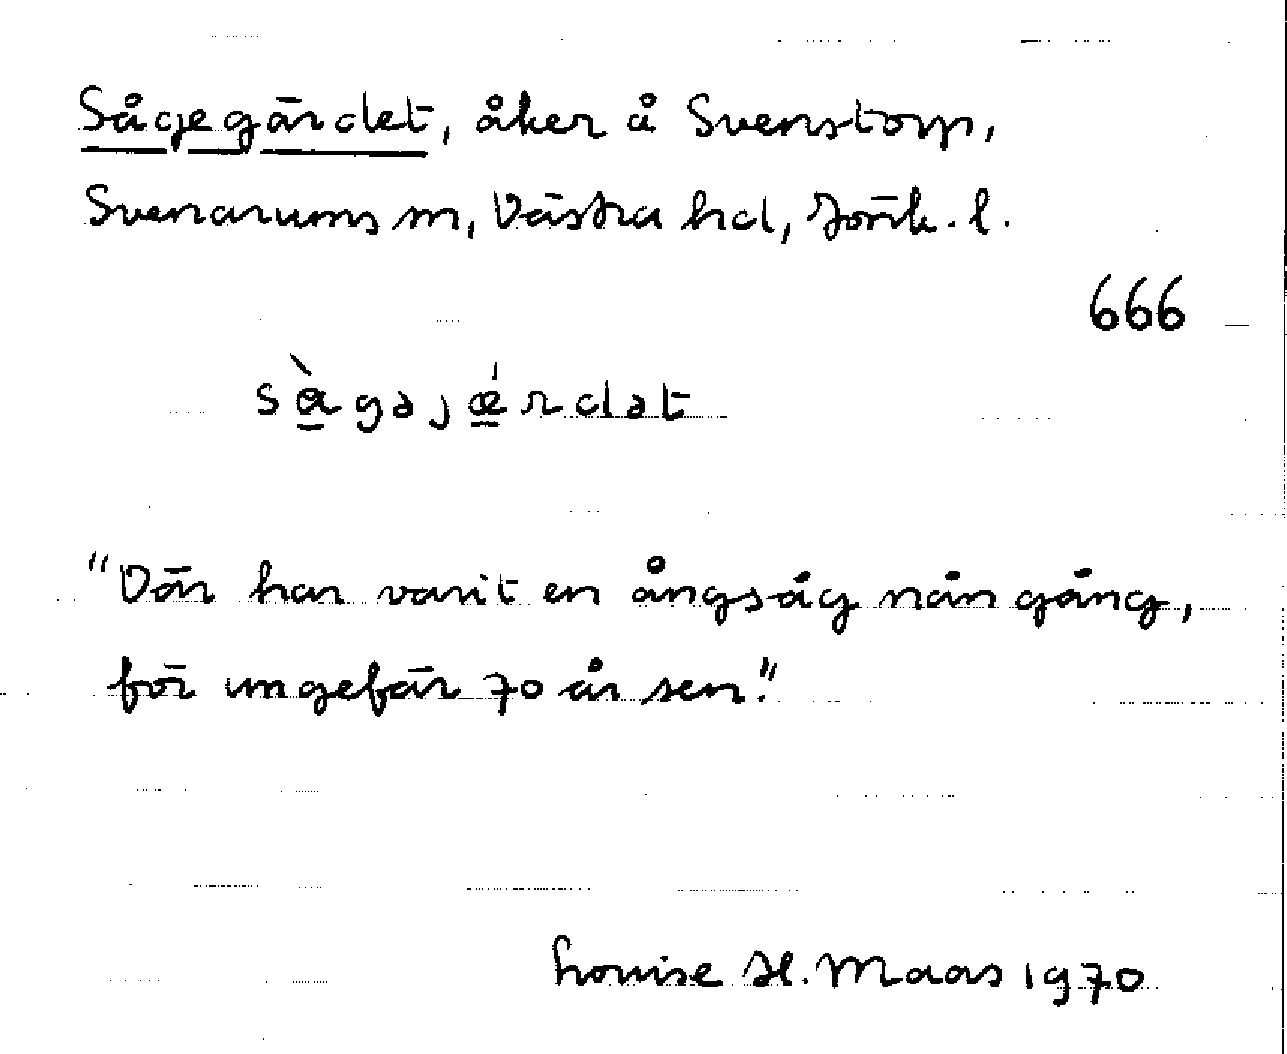 Sågegärdet, åker å Svenstorp,
Svenarums sn, Västra hd, Jönk. l.
666
sàgəjǽrdət
"Där har varit en ångsåg nån gång,
för ungefär 70 år sen."
Louise H. Maas 1970